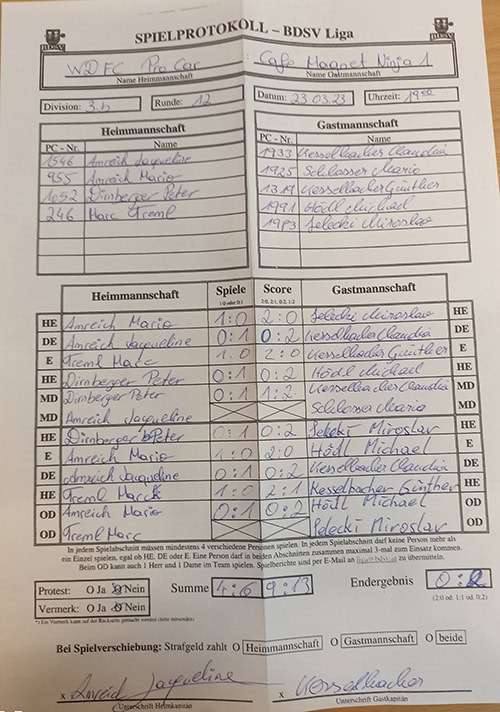 BDSV SPIELPROTOKOLL – BDSV Liga BDSV
WDFC Pro Car : Cafe Magnet Ninja 1
Name Heimmannschaft Name Gastmannschaft
Division: 3.b Runde: 12 Datum: 23.03.23 Uhrzeit: 19⁰⁰
Heimmannschaft Gastmannschaft
PC - Nr. Name PC - Nr. Name
1546 Amreich Jaqueline 1933 Kesselbacher Claudia
955 Amreich Mario 1925 Schlosser Mario
1052 Dirnberger Peter 1319 Kesselbacher Günther
246 Marc Treml 1991 Hödl Michael
1983 Selecki Miroslav
Heimmannschaft Spiele Score Gastmannschaft
1:0 oder 0:1 2:0, 2:1, 0:2, 1:2
HE Amreich Mario 1:0 2:0 Selecki Miroslaw HE
DE Amreich Jaqueline 0:1 0:2 Kesselbacher Claudia DE
E Treml Marc 1:0 2:0 Kesselbacher Günther E
HE Dirnberger Peter 0:1 0:2 Hödl Michael HE
MD Dirnberger Peter 0:1 1:2 Kesselbacher Claudia MD
MD Amreich Jaqueline Schlosser Mario MD
HE Dirnberger Peter 0:1 0:2 Selecki Miroslav HE
E Amreich Mario 1:0 2:0 Hödl Michael E
DE Amreich Jaqueline 0:1 0:2 Kesselbacher Claudia DE
HE Treml Marc 1:0 2:1 Kesselbacher Günther HE
OD Amreich Mario 0:1 0:2 Hödl Michael OD
OD Treml Marc Selecki Miroslav OD
In jedem Spielabschnitt müssen mindestens 4 verschiedene Personen spielen. In jedem Spielabschnitt darf keine Person mehr als
ein Einzel spielen, egal ob HE, DE oder E. Eine Person darf in beiden Abschnitten zusammen maximal 3-mal zum Einsatz kommen.
Beim OD kann auch 1 Herr und 1 Dame im Team spielen. Spielberichte sind per E-Mail an zu übermitteln.
Protest: O Ja O Nein Summe 4:6 9:13 Endergebnis 0:2
Vermerk: O Ja O Nein (2:0 od. 1:1 od. 0:2)
*) Ein Vermerk kann auf der Rückseite gemacht werden (bitte mitsenden)
Bei Spielverschiebung: Strafgeld zahlt O Heimmannschaft O Gastmannschaft O beide
x Amreich Jaqueline x Kesselbacher
Unterschrift Heimkapitän Unterschrift Gastkapitän